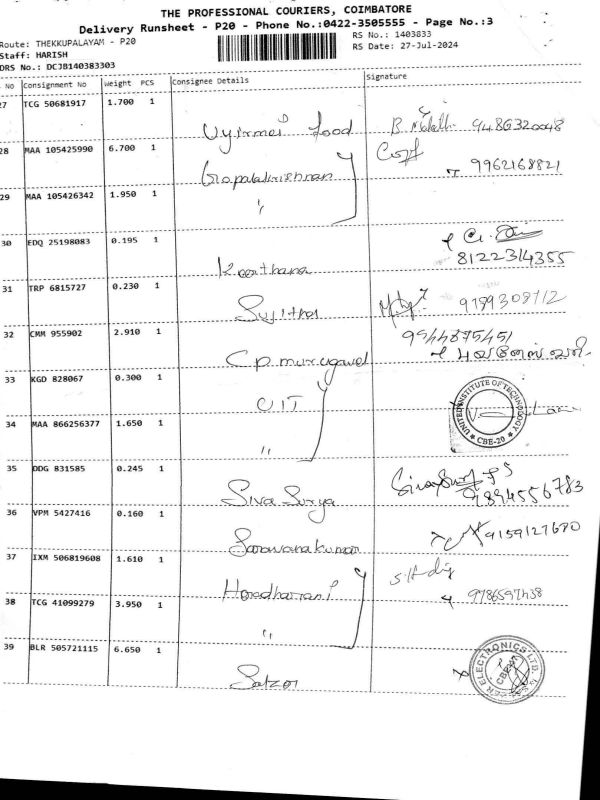 THE PROFESSIONAL COURIERS, COIMBATORE
Delivery Runsheet - P20 - Phone No.:0422-3505555 - Page No.:3
Route: THEKKUPALAYAM - P20
RS No.: 1403833
Staff: HARISH
RS Date: 27-Jul-2024
DRS No.: DCJB140383303
No Consignment No Weight PCS Consignee Details Signature
27 TCG 50681917 1.700 1
Uyirmei food 9486320048
28 MAA 105425990 6.700 1
Gopalakrishnan 9962168821
29 MAA 105426342 1.950 1
"
30 EDQ 25198083 0.195 1
Keerthana 8122314355
31 TRP 6815727 0.230 1
Sujitha
32 CMM 955902 2.910 1
9944875451
C.p.murugavel
33 KGD 828067 0.300 1
UIT
UNITED INSTITUTE OF TECHNOLOGY
CBE-20
34 MAA 866256377 1.650 1
"
35 DDG 831585 0.245 1
Siva Surya 9894556783
36 VPM 5427416 0.160 1
Saravanakumar 9159127680
37 IXM 506819608 1.610 1
38 TCG 41099279 3.950 1
"
39 BLR 505721115 6.650 1
ELECTRONICS